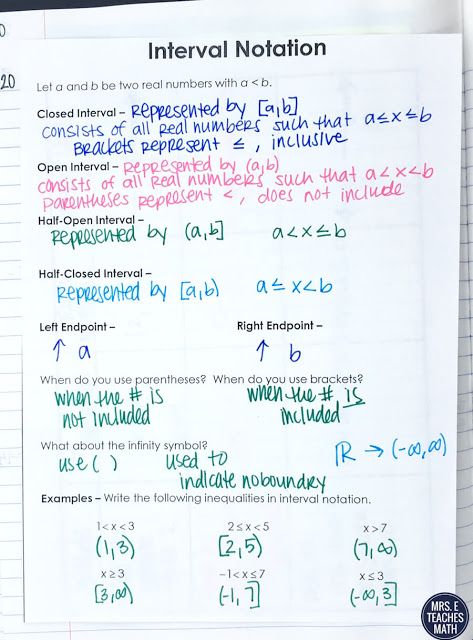 0
20
Interval Notation
Let a and b be two real numbers with a < b.
Closed Interval – Represented by [a,b]
consists of all real numbers such that a≤x≤b
Brackets represent ≤, inclusive
Open Interval – Represented by (a,b)
consists of all real numbers such that a<x<b
parentheses represent <, does not include
Half-Open Interval –
Represented by (a,b] a<x≤b
Half-Closed Interval –
Represented by [a,b) a≤x<b
Left Endpoint – Right Endpoint –
↑ a ↑ b
When do you use parentheses? When do you use brackets?
when the # is when the # is
not included included
What about the infinity symbol?
use ( ) used to ℝ → (-∞,∞)
indicate no boundry
Examples – Write the following inequalities in interval notation.
1 < x < 3 2 ≤ x < 5 x > 7
(1,3) [2,5) (7,∞)
x ≥ 3 −1 < x ≤ 7 x ≤ 3
[3,∞) (-1,7] (-∞,3]
MRS. E
TEACHES
MATH